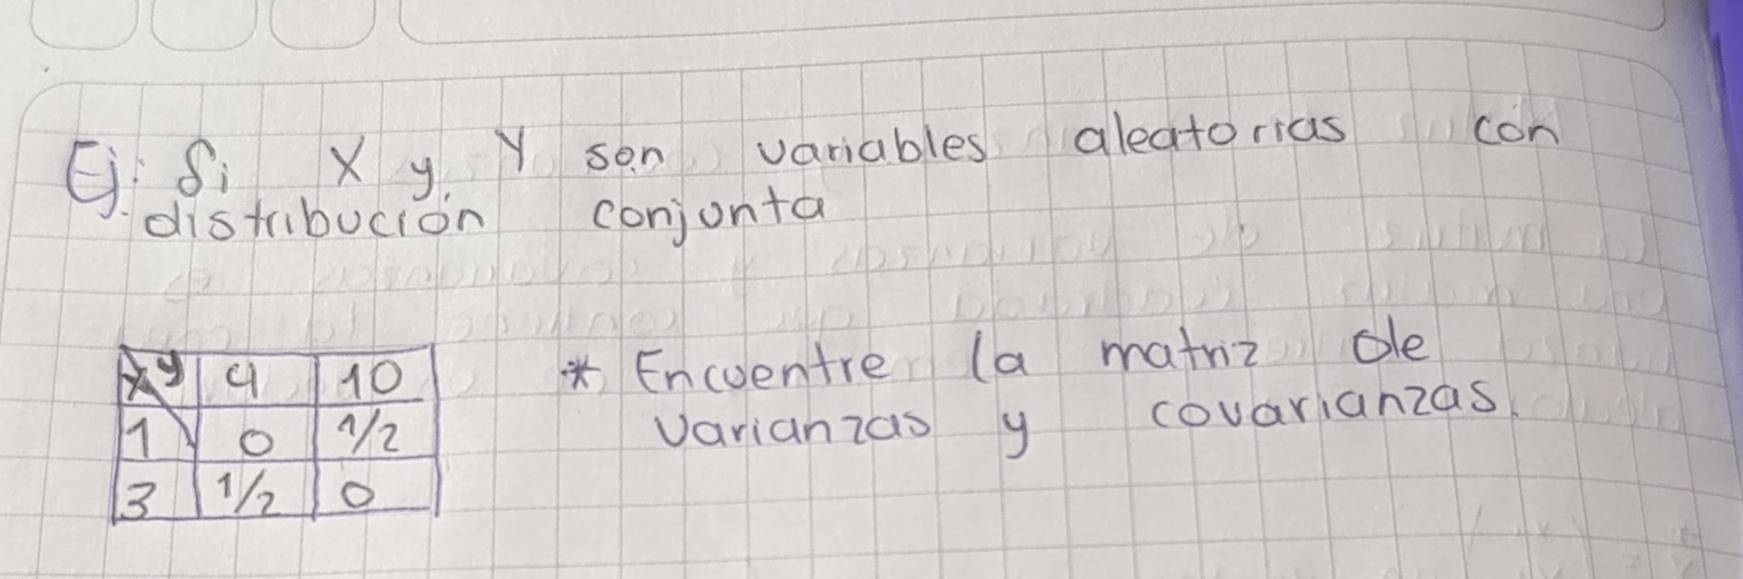 Ej: Si X y Y son variables aleatorias con
distribución conjunta
X Y 4 10
1 0 1/2
3 1/2 0
* Encuentre la matriz de
varianzas y covarianzas.